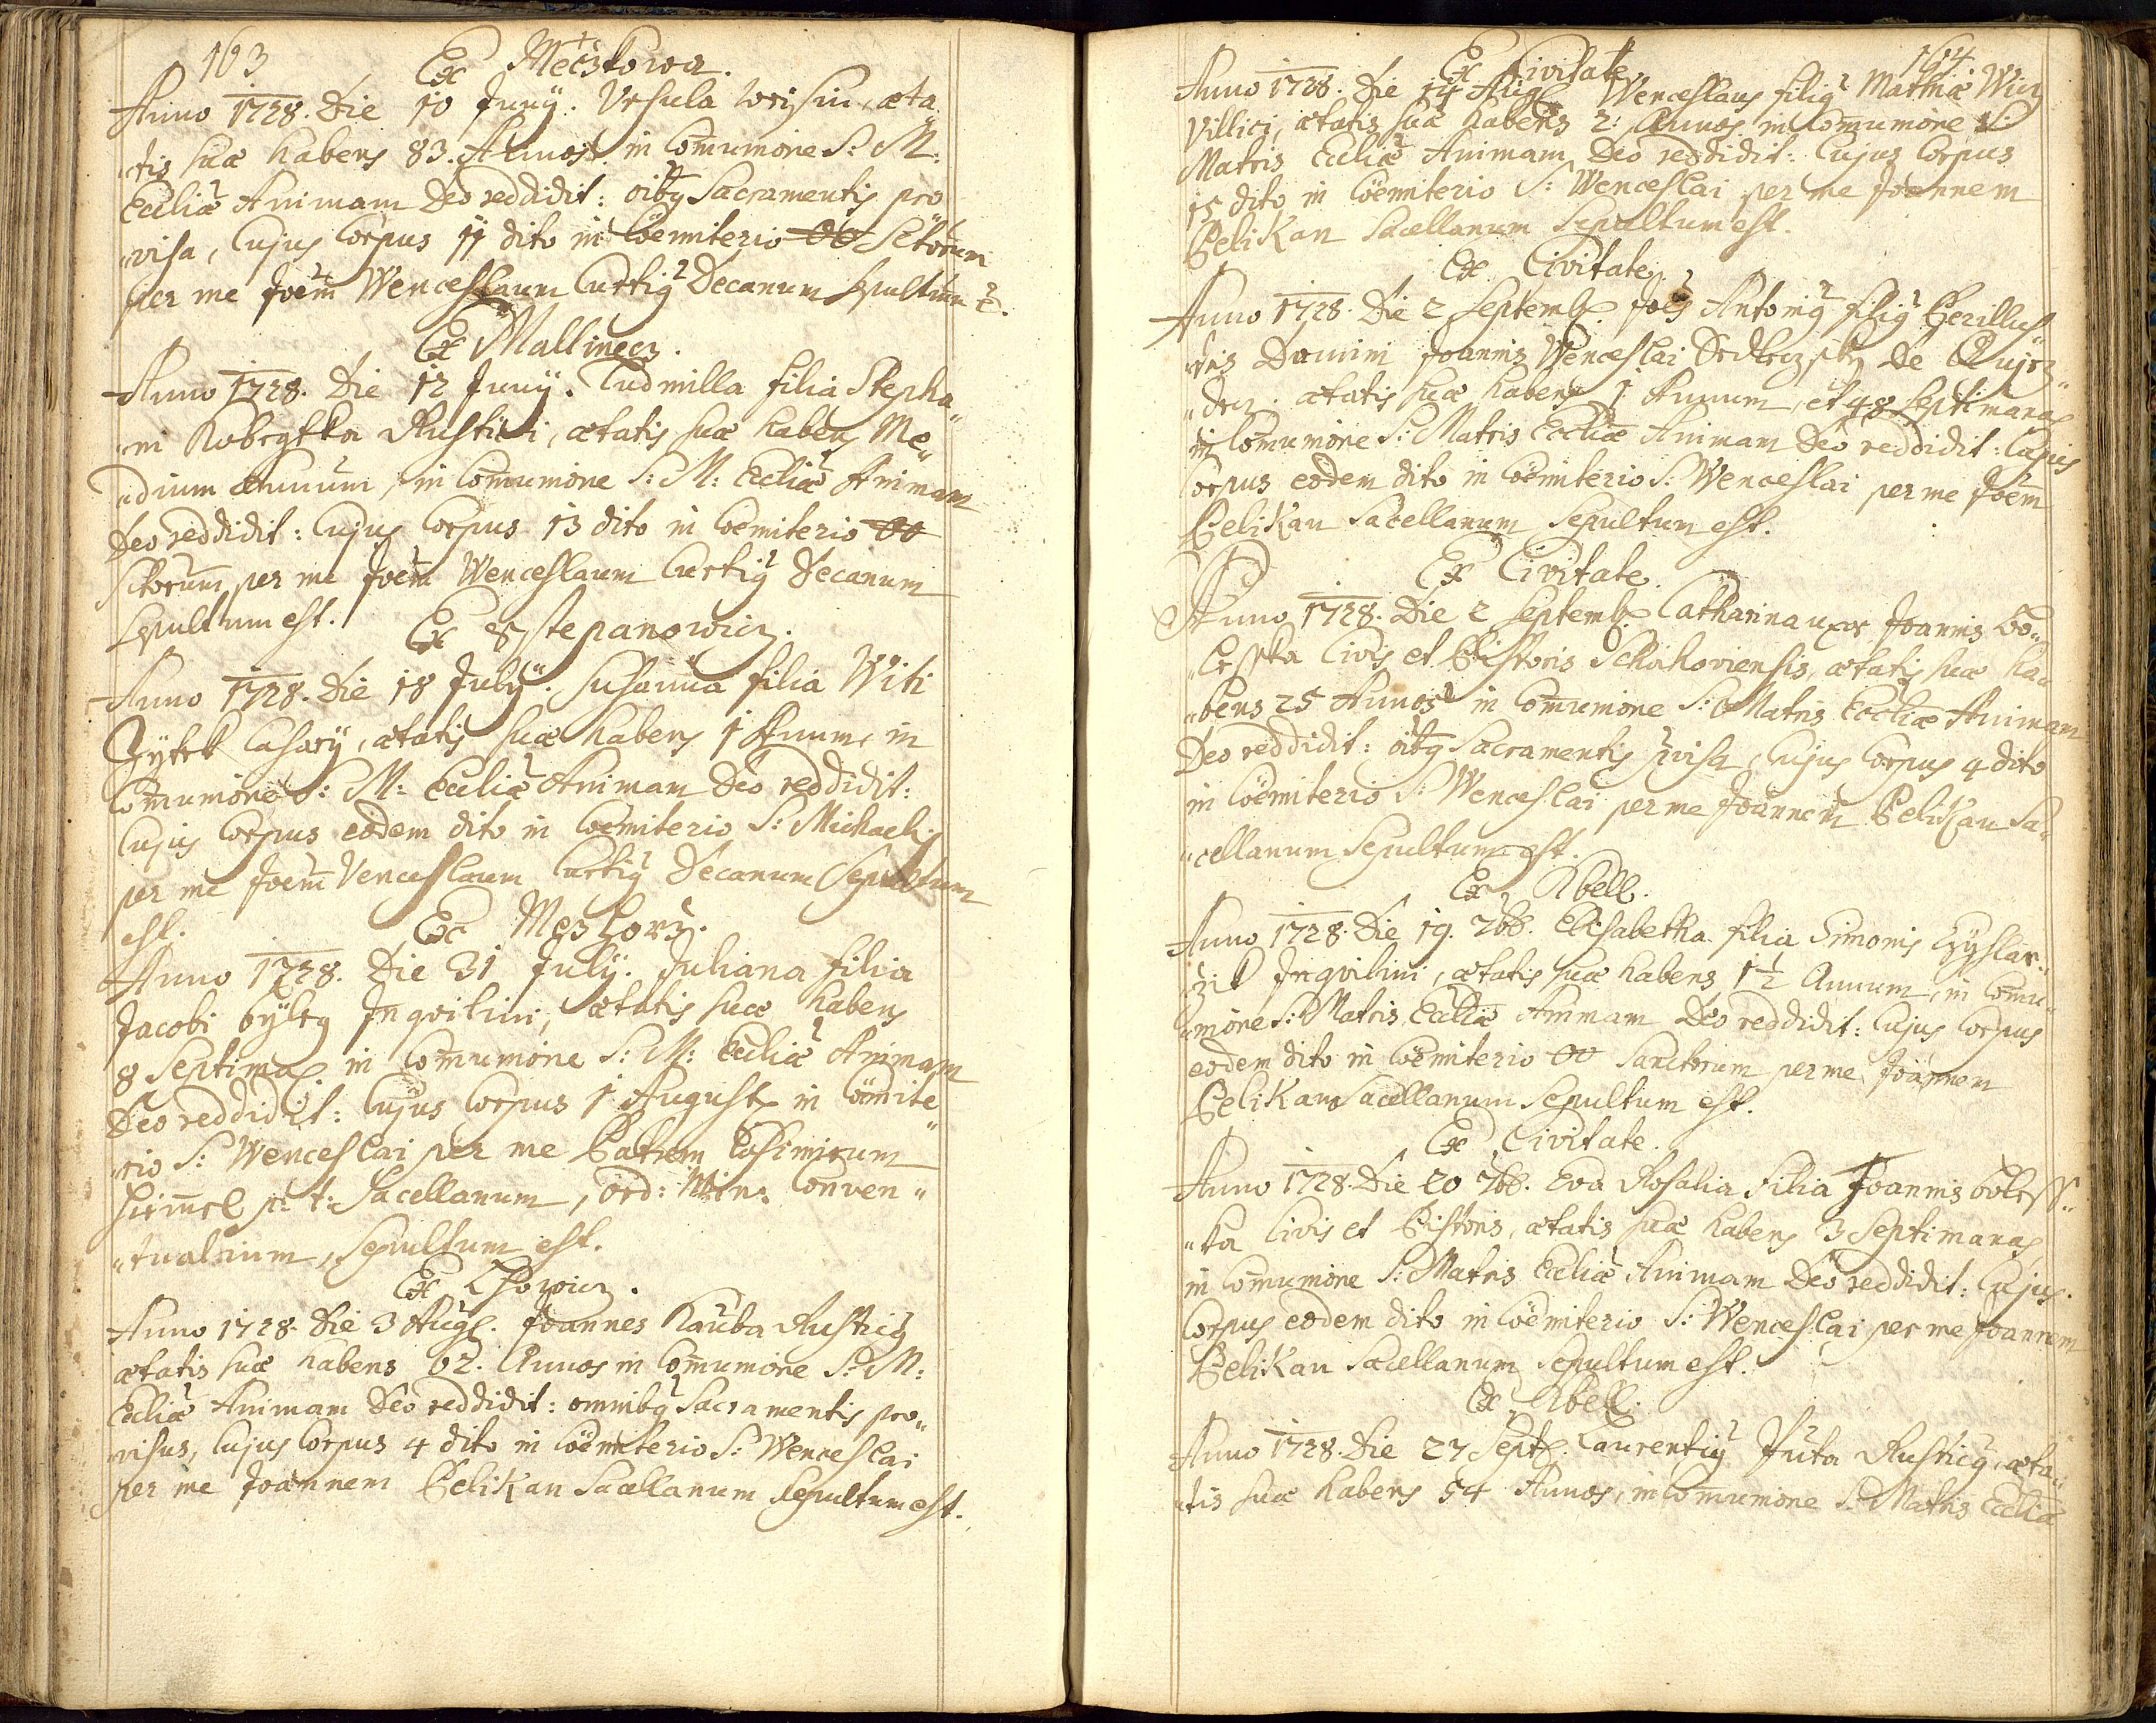 163
Ex Meczkowa.
Anno 1728. Die 10 Junÿ. Ursula, æta„
„tis suæ habens 83. Annos in Com̄unione S: M:
Eccliæ Animam Deo reddidit: oibꝯ Sacramentis pro„
„visa, Cujus Corpus 11 dito in Cöemiterio OO Sctorum
per me Joem̄ Wenceslaum Curtiꝯ Decanum sepultum ē.
Ex Mallinecz.
Anno 1728. Die 12 Junÿ. Ludmilla filia Stepha„
„ni Rustici, ætatis suæ habens Me„
„dium Annum, in Com̄unione S: M: Eccliæ Animam
Deo reddidit: Cujus Corpus 13 dito in Cöemiterio OO
Sctorum per me Joem̄ Wenceslaum Curtiꝯ Decanum
sepultum est.
Ex Sstepanowicz.
Anno 1728. Die 18 Julÿ. Susanna filia Witi
Zÿtek Casarÿ, ætatis suæ habens 1 Annum, in
Com̄unione S: M: Eccliæ Animam Deo reddidit:
Cujus Corpus eodem dito in Cöemiterio S: Michaelis
per me Joem̄ Venceslaum Curtiꝯ Decanum Sepultum
est.
Ex Mezhorz.
Anno 1728. Die 31 Julÿ. Juliana filia
Jacobi Bÿleg Inqvilini, ætatis suæ habens
8 Septimas in Com̄unione S: M: Eccliæ Animam
Deo reddidit: Cujus Corpus 1 Augusti in Cöemite„
„rio S: Wenceslai per me Patrem Casimirum
Him̄el p: t: Sacellanum, Ord: Min: Conven„
„tualium, sepultum est.
Ex Lhowicz.
Anno 1728. Die 3 Augs. Joannes Kauba Rusticꝯ
ætatis suæ habens 62. Annos in Com̄unione S: M:
Eccliæ Animam Deo reddidit: omnibꝯ Sacramentis pro„
„visus, Cujus Corpus 4 dito in Cöemiterio S: Wenceslai
per me Joannem Pelikan Sacellanum Sepultum est.
164.
Ex Civitate
Anno 1728. Die 14 Augs. Wenceslaus filiꝯ Mathiæ
Villici, ætatis suæ habens 2. Annos in Com̄unione S:
Matris Eccliæ Animam Deo reddidit: Cujus Corpus
15 dito in Cöemiterio S: Wenceslai per me Joannem
Pelikan Sacellanum Sepultum est.
Ex Civitate.
Anno 1728. Die 2 Septemb. Joēs Antoniꝯ filiꝯ Perillus„
„tris Domini Joannis Wenceslai Sedleczky De
ætatis suæ habens 1 Annum, et 48 septimanas
in Com̄unione S: Matris Eccliæ Animam Deo reddidit: Cujus
Corpus eodem dito in Cöemiterio S: Wenceslai per me Joem̄
Pelikan Sacellanum Sepultum est.
Ex Civitate.
Anno 1728. Die 2 Septemb. Catharina uxor Joannis Bo„
„lesska Civis et Pistoris Schihoviensis, ætatis suæ ha„
„bens 25 Annos in Com̄unione S: Matris Eccliæ Animam
Deo reddidit: oibꝯ Sacramentis pvisa, Cujus Corpus 4 dito
in Cöemiterio S: Wenceslai per me Joannem Pelikan Sa„
„cellanum Sepultum est.
Ex Kbell.
Anno 1728. Die 19. 7bb. Elisabetha filia Simonis
Inqvilini, ætatis suæ habens 1½ Annum, in Com̄u„
„nione S: Matris Eccliæ Animam Deo reddidit: Cujus Corpus
eodem dito in Cöemiterio OO Sanctorum per me Joannem
Pelikan Sacellanum Sepultum est.
Ex Civitate.
Anno 1728. Die 20 7bb. Eva Rosalia Filia Joannis Boless„
„ka Civis et Pistoris, ætatis suæ habens 3 Septimanas
in Com̄unione S: Matris Eccliæ Animam Deo reddidit: Cujus
Corpus eodem dito in Cöemiterio S: Wenceslai per me Joannem
Pelikan Sacellanum Sepultum est.
Ex Kbell.
Anno 1728. Die 27 Septs. Laurentiꝯ Juta Rusticꝯ, æta„
„tis suæ habens 54 Annos, in Com̄unione S: Matris Eccliæ